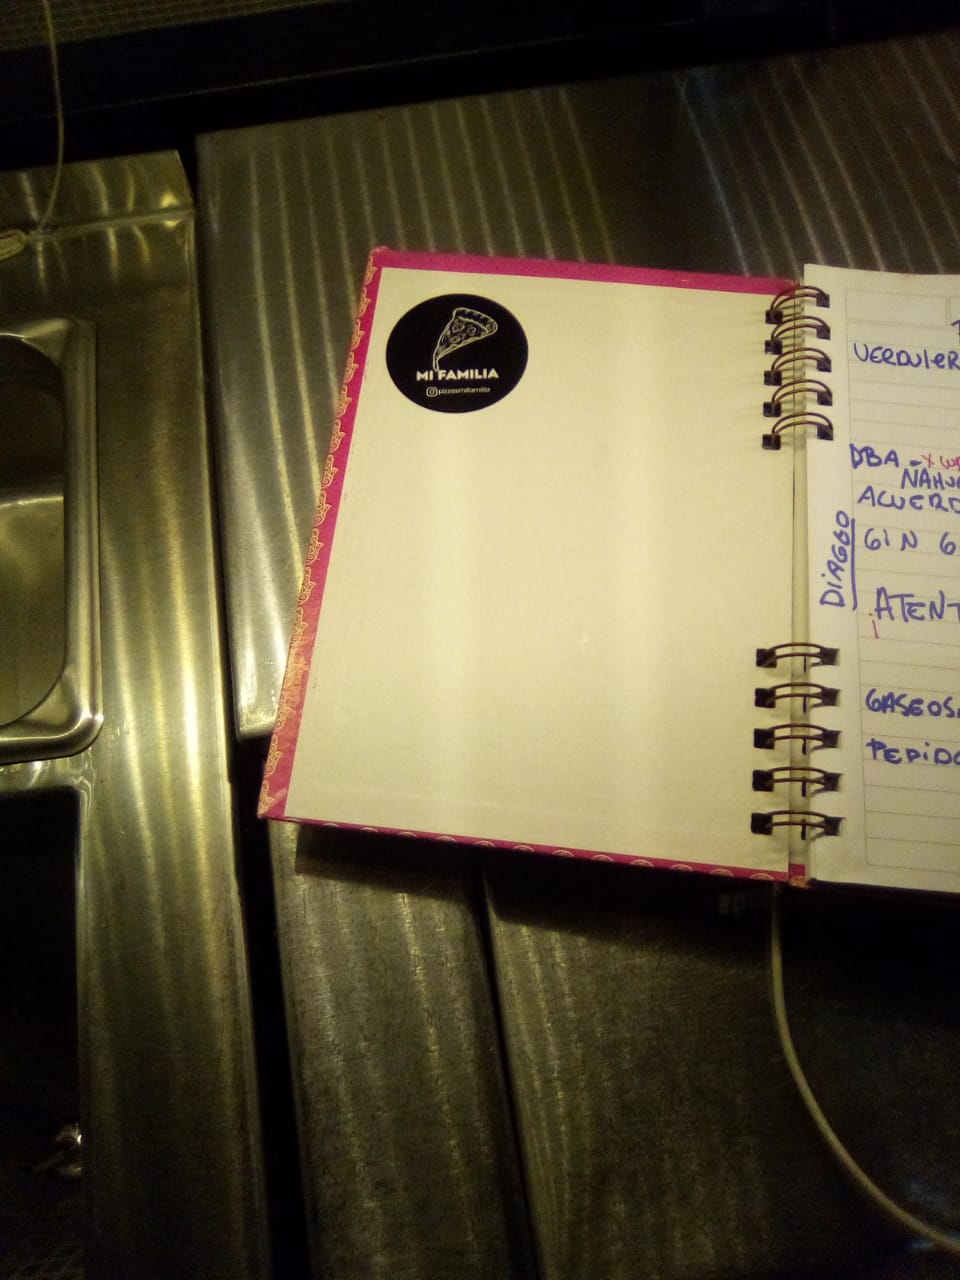 MI FAMILIA
pizzasmifamilia
VERDULER
DBA -
NAHU
ACUERD
DIAGGO
GIN G
ATENT
GASEOS
PEDIDO